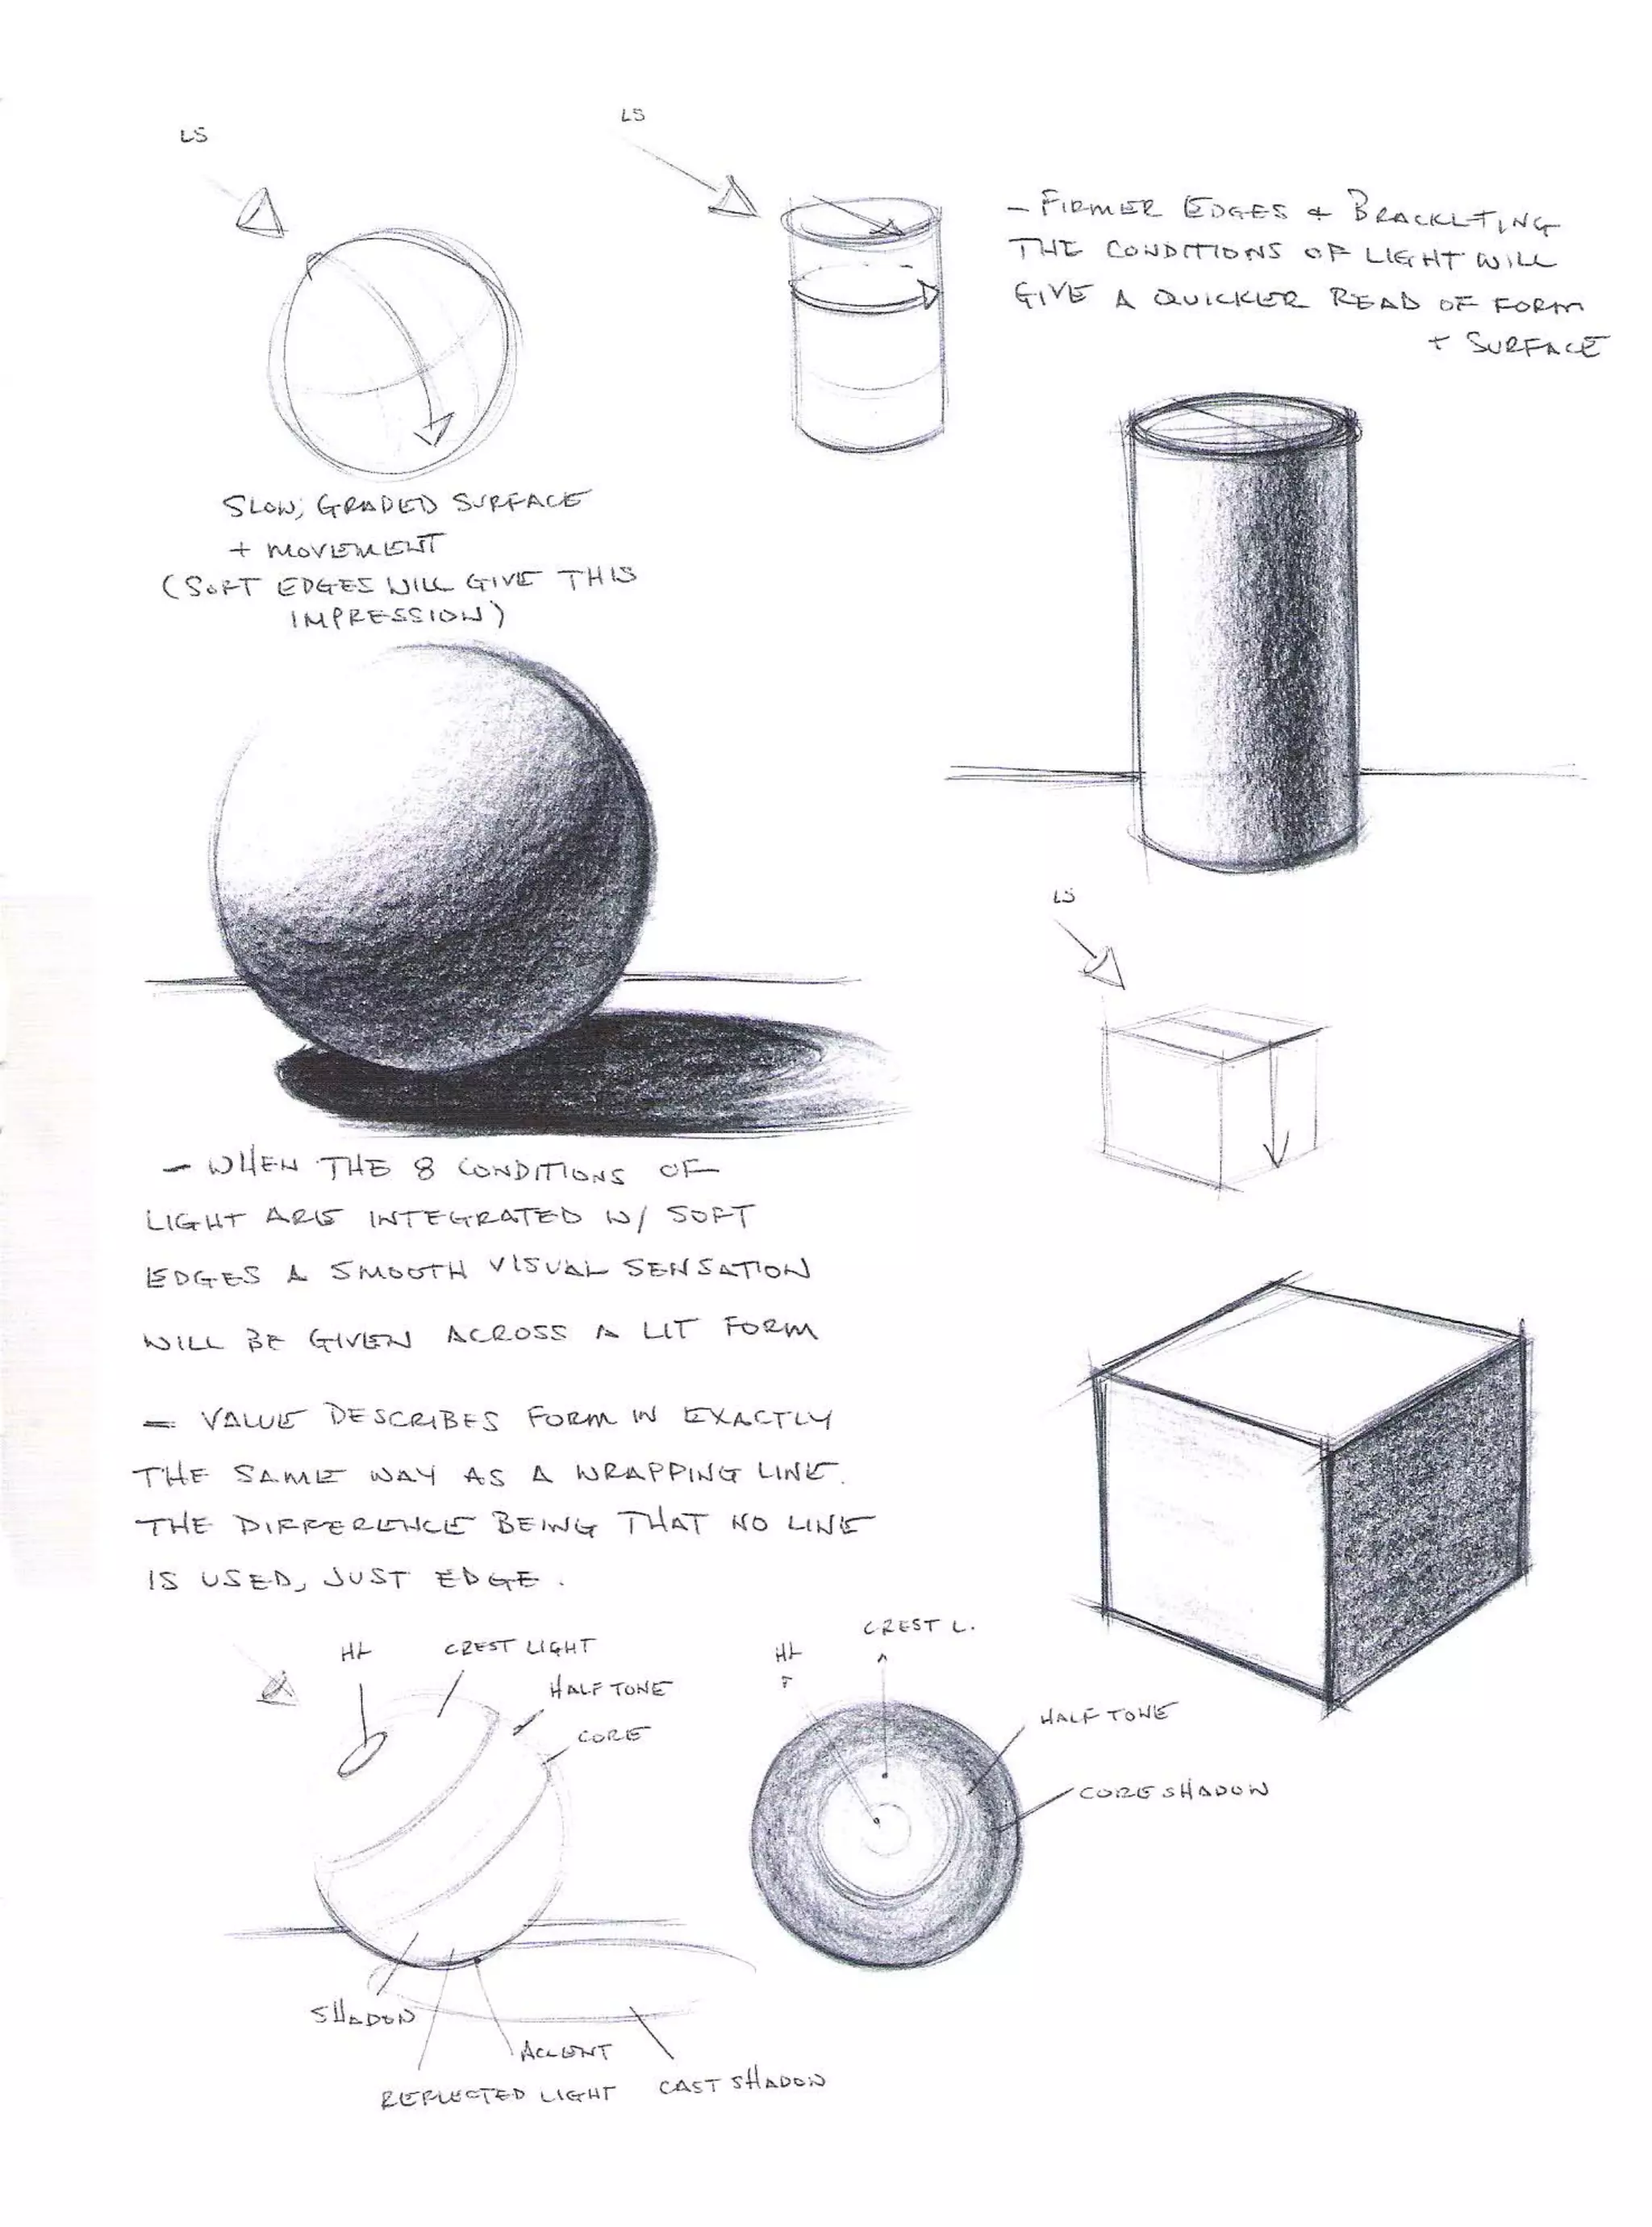 LS
LS
- FIRMER EDGES + BRACKETING
THE CONDITIONS OF LIGHT WILL
GIVE A QUICKER READ OF FORM
+ SURFACE
SLOW, GRADED SURFACE
+ MOVEMENT
(SOFT EDGES WILL GIVE THIS
IMPRESSION)
LS
- WHEN THE 8 CONDITIONS OF
LIGHT ARE INTEGRATED W/ SOFT
EDGES A SMOOTH VISUAL SENSATION
WILL BE GIVEN ACROSS A LIT FORM
- VALUE DESCRIBES FORM IN EXACTLY
THE SAME WAY AS A WRAPPING LINE.
THE DIFFERENCE BEING THAT NO LINE
IS USED, JUST EDGE.
HL
CREST LIGHT
HALF TONE
CORE
SHADOW
ACCENT
REFLECTED LIGHT
CAST SHADOW
HL
CREST L.
HALF TONE
CORE SHADOW